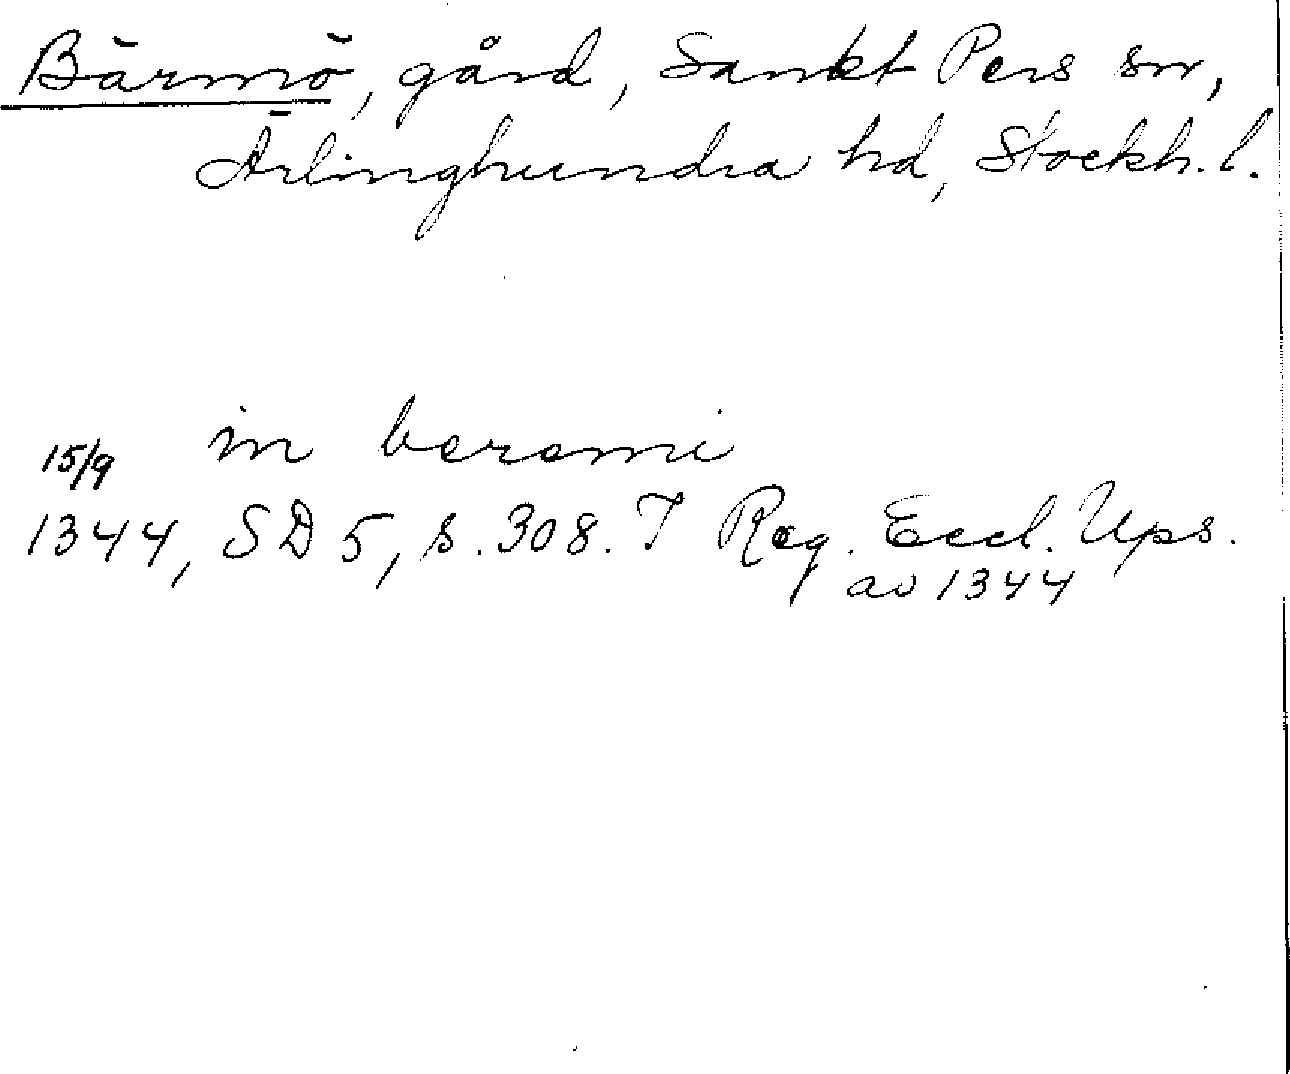 Bärmö, gård, Sankt Pers sn,
Ärlinghundra hd, Stockh. l.
in beremi
15/9
1344, SD 5, s. 308. I Reg. Eccl. Ups.
av 1344